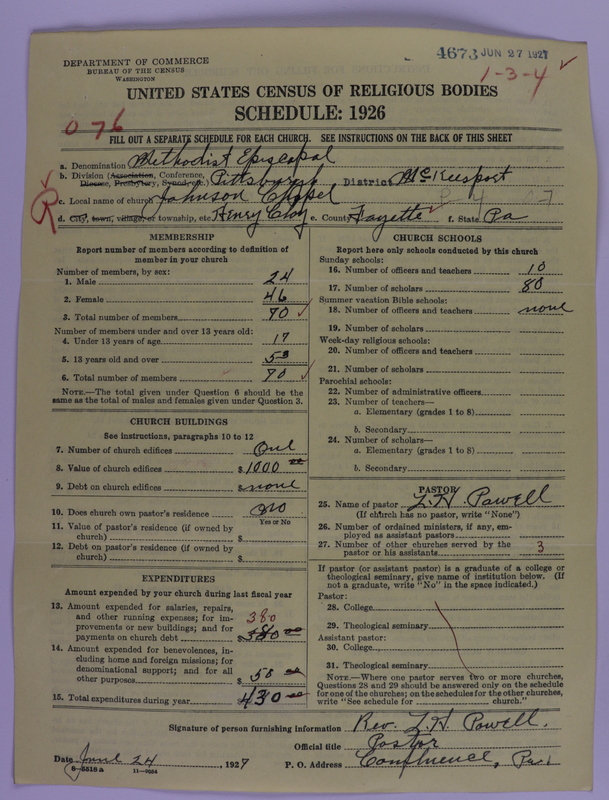 4673 JUN 27 1927
DEPARTMENT OF COMMERCE
BUREAU OF THE CENSUS
WASHINGTON
1-3-4
UNITED STATES CENSUS OF RELIGIOUS BODIES
SCHEDULE: 1926
076
FILL OUT A SEPARATE SCHEDULE FOR EACH CHURCH. SEE INSTRUCTIONS ON THE BACK OF THIS SHEET
a. Denomination Methodist Episcopal
b. Division (Association, Conference, Diocese, Presbytery, Synod, etc.) Pittsburgh District McKeesport
R
c. Local name of church Johnson Chapel
d. City, town, village, or township, etc. Henry Clay e. County Fayette f. State Pa
MEMBERSHIP
Report number of members according to definition of
member in your church
Number of members, by sex:
1. Male 24
2. Female 46
3. Total number of members 70
Number of members under and over 13 years old:
4. Under 13 years of age 17
5. 13 years old and over 53
6. Total number of members 70
NOTE.—The total given under Question 6 should be
same as the total of males and females given under Question 3.
CHURCH BUILDINGS
See instructions, paragraphs 10 to 12
7. Number of church edifices One
8. Value of church edifices $1000 00
9. Debt on church edifices $none
10. Does church own pastor's residence no
Yes or No
11. Value of pastor's residence (if owned by
church) $
12. Debt on pastor's residence (if owned by
church) $
EXPENDITURES
Amount expended by your church during last fiscal year
13. Amount expended for salaries, repairs,
and other running expenses; for im-
provements or new buildings; and for
payments on church debt 380 $380 00
14. Amount expended for benevolences, in-
cluding home and foreign missions; for
denominational support; and for all
other purposes $ 50 00
15. Total expenditures during year $430 00
CHURCH SCHOOLS
Report here only schools conducted by this church
Sunday schools:
16. Number of officers and teachers 10
17. Number of scholars 80
Summer vacation Bible schools:
18. Number of officers and teachers none
19. Number of scholars
Week-day religious schools:
20. Number of officers and teachers
21. Number of scholars
Parochial schools:
22. Number of administrative officers
23. Number of teachers—
a. Elementary (grades 1 to 8)
b. Secondary
24. Number of scholars—
a. Elementary (grades 1 to 8)
b. Secondary
PASTOR
25. Name of pastor L. H. Powell
(If church has no pastor, write "None")
26. Number of ordained ministers, if any, em-
ployed as assistant pastors
27. Number of other churches served by the
pastor or his assistants 3
If pastor (or assistant pastor) is a graduate of a college or
theological seminary, give name of institution below. (If
not a graduate, write "No" in the space indicated.)
Pastor:
28. College
29. Theological seminary
Assistant pastor:
30. College
31. Theological seminary
NOTE.—Where one pastor serves two or more churches,
Questions 28 and 29 should be answered only on the schedule
for one of the churches; on the schedules for the other churches,
write "See schedule for church."
Signature of person furnishing information Rev. L. H. Powell.
Official title Pastor
Date June 24, 1927 P. O. Address Confluence, Pa.
8-5518 a 11-9054